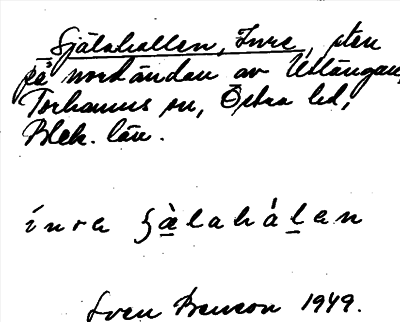 Själahallen, Inre, sten
på norländan av Utlängan,
Torhamns sn, Östra hd,
Blek. län.
inra ʃàlahálan
Sven Benson 1949.